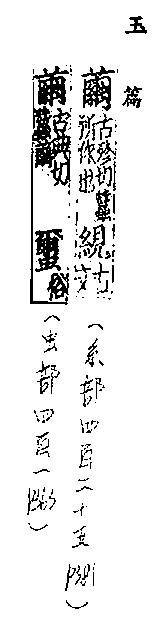 玉篇
繭 古殄切蠶所作也 絸 古文
(糸部四百二十五 P381)
繭 古典切 俗
(虫部四百一 P363)